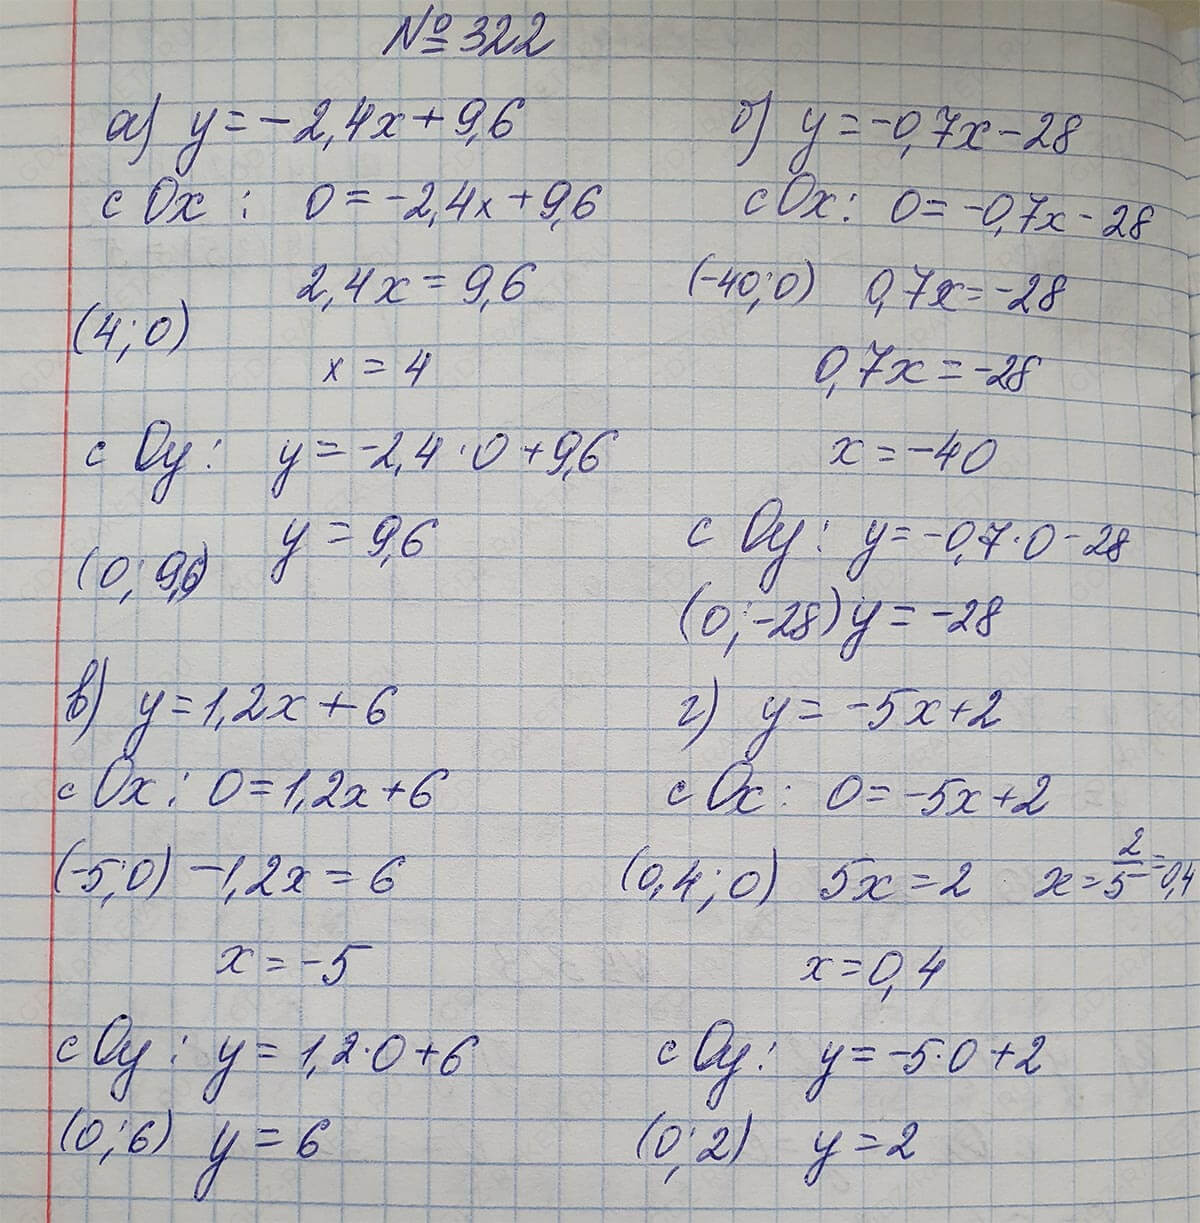 №322
а) y = -2,4x + 9,6
с Ox : 0 = -2,4x + 9,6
2,4x = 9,6
(4; 0)
x = 4
с Oy : y = -2,4 · 0 + 9,6
y = 9,6
(0; 9,6)
б) y = -0,7x - 28
с Ox : 0 = -0,7x - 28
(-40; 0) 0,7x = -28
0,7x = -28
x = -40
с Oy : y = -0,7 · 0 - 28
(0; -28) y = -28
в) y = 1,2x + 6
с Ox : 0 = 1,2x + 6
(-5; 0) -1,2x = 6
x = -5
с Oy : y = 1,2 · 0 + 6
(0; 6) y = 6
г) y = -5x + 2
с Ox : 0 = -5x + 2
(0,4; 0) 5x = 2 x = 2/5 = 0,4
x = 0,4
с Oy : y = -5 · 0 + 2
(0; 2) y = 2